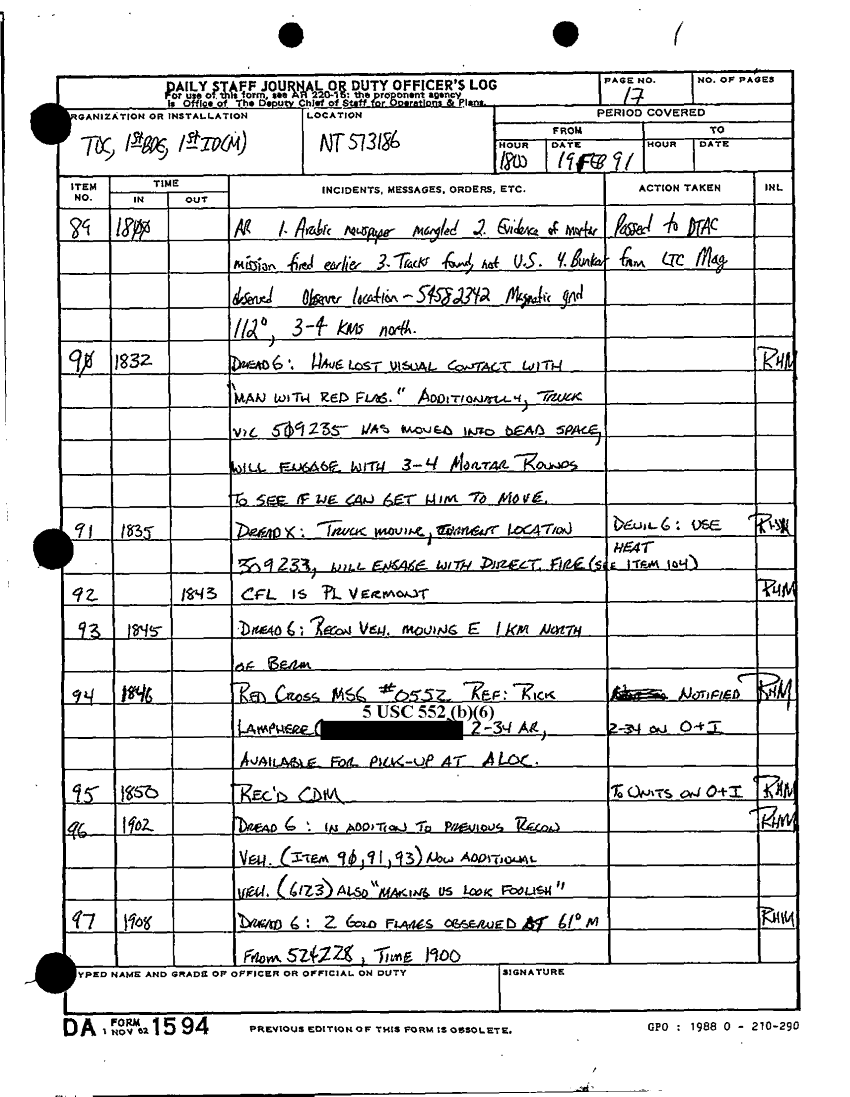 DAILY STAFF JOURNAL OR DUTY OFFICER'S LOG
For use of this form, see AR 220-15: the proponent agency
is Office of The Deputy Chief of Staff for Operations & Plans.
PAGE NO.
17
NO. OF PAGES
RGANIZATION OR INSTALLATION
TOC, 1st BDE, 1st ID(M)
LOCATION
NT 573186
PERIOD COVERED
FROM
TO
HOUR
1800
DATE
19 FEB 91
HOUR
DATE
ITEM NO.
TIME
IN
OUT
INCIDENTS, MESSAGES, ORDERS, ETC.
ACTION TAKEN
INL
89 18ØØ AR 1. Arabic newspaper mangled 2. Evidence of mortar Passed to DTAC
mission fired earlier 3. Tracks found, not U.S. 4. Bunker from LTC Mag
observed Observer location - 54582342 Magnetic grid
112°, 3-4 KMS north.
9Ø 1832 DREAD 6: HAVE LOST VISUAL CONTACT WITH RHM
"MAN WITH RED FLAG." ADDITIONALLY, TRUCK
VIC 509235 HAS MOVED INTO DEAD SPACE,
WILL ENGAGE WITH 3-4 MORTAR ROUNDS
TO SEE IF WE CAN GET HIM TO MOVE.
91 1835 DREAD X: TRUCK MOVING, CURRENT LOCATION DEVIL 6: USE RHM
HEAT
509233, WILL ENGAGE WITH DIRECT FIRE (SEE ITEM 104)
92 1843 CFL IS PL VERMONT RHM
93 1845 DREAD 6: RECON VEH. MOVING E 1 KM NORTH
OF BERM
94 1846 RED CROSS MSG #0552 REF: RICK NOTIFIED RHM
5 USC 552 (b)(6)
LAMPHERE ( 2-34 AR, 2-34 ON O+I
AVAILABLE FOR PICK-UP AT ALOC.
95 1850 REC'D CDM TO UNITS ON O+I RHM
96 1902 DREAD 6: IN ADDITION TO PREVIOUS RECON RHM
VEH. (ITEM 9Ø, 91, 93) NOW ADDITIONAL
VEH. (6123) ALSO "MAKING US LOOK FOOLISH"
97 1908 DREAD 6: 2 GOLD FLARES OBSERVED AT 61° M RHM
FROM 524228, TIME 1900
YPED NAME AND GRADE OF OFFICER OR OFFICIAL ON DUTY
SIGNATURE
DA FORM 1 NOV 62 1594
PREVIOUS EDITION OF THIS FORM IS OBSOLETE.
GPO : 1988 O - 210-290